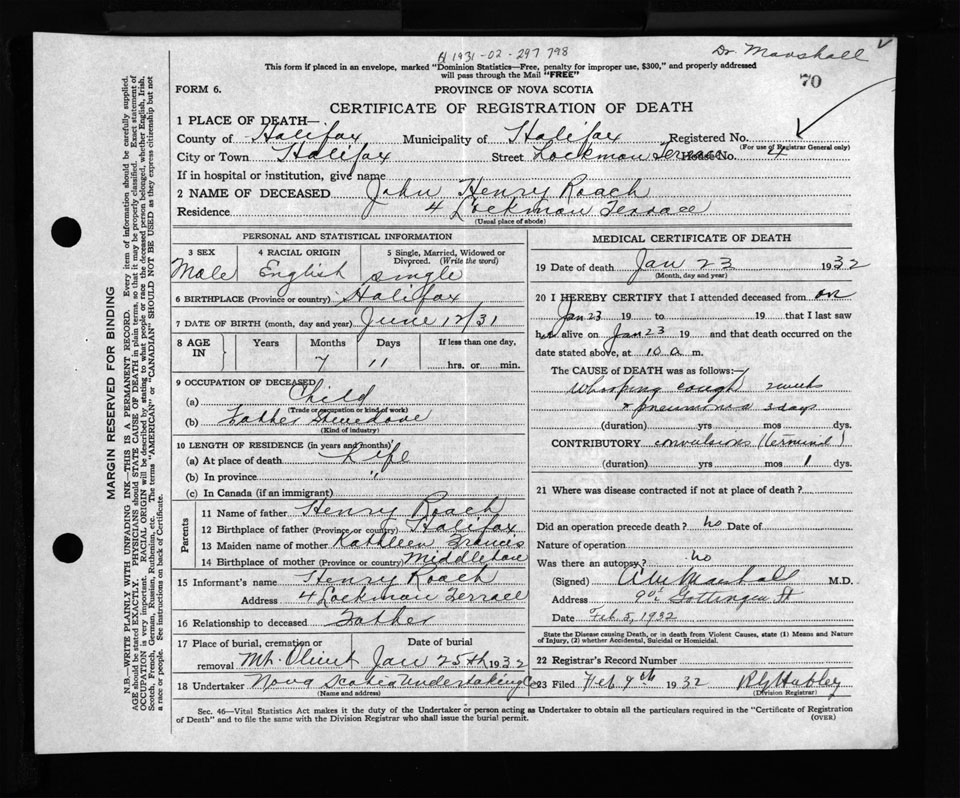 H 1931-02-297 798
Dr. Marshall
This form if placed in an envelope, marked "Dominion Statistics—Free, penalty for improper use, $300," and properly addressed
will pass through the Mail "FREE"
70
FORM 6.
PROVINCE OF NOVA SCOTIA
CERTIFICATE OF REGISTRATION OF DEATH
1 PLACE OF DEATH—
County of Halifax Municipality of Halifax Registered No.
(For use of Registrar General only)
City or Town Halifax Street Lockman Terrace House No. 4
If in hospital or institution, give name
2 NAME OF DECEASED John Henry Roach
Residence 4 Lockman Terrace
(Usual place of abode)
PERSONAL AND STATISTICAL INFORMATION
3 SEX 4 RACIAL ORIGIN 5 Single, Married, Widowed or
Divorced. (Write the word)
Male English single
6 BIRTHPLACE (Province or country) Halifax
7 DATE OF BIRTH (month, day and year) June 12/31
8 AGE IN Years Months Days If less than one day,
7 11 hrs. or min.
9 OCCUPATION OF DECEASED
(a) Child
(Trade or occupation or kind of work)
(b) Father
(Kind of industry)
10 LENGTH OF RESIDENCE (in years and months)
(a) At place of death Life
(b) In province "
(c) In Canada (if an immigrant)
Parents
11 Name of father Henry Roach
12 Birthplace of father (Province or country) Halifax
13 Maiden name of mother Kathleen Francis
14 Birthplace of mother (Province or country)
15 Informant's name Henry Roach
Address 4 Lockman Terrace
16 Relationship to deceased Father
17 Place of burial, cremation or Date of burial
removal Mt. Olivet Jan 25th 1932
18 Undertaker Nova Scotia Undertaking Co
(Name and address)
MEDICAL CERTIFICATE OF DEATH
19 Date of death Jan 23 1932
(Month, day and year)
20 I HEREBY CERTIFY that I attended deceased from on
Jan 23 19 to 19 that I last saw
h alive on Jan 23 19 and that death occurred on
date stated above, at 10 a. m.
The CAUSE of DEATH was as follows:—
Whooping cough 2 weeks
& pneumonia 3 days
(duration) yrs mos dys.
CONTRIBUTORY convulsions (terminal)
(duration) yrs mos 1 dys.
21 Where was disease contracted if not at place of death?
Did an operation precede death? no Date of
Nature of operation
Was there an autopsy? no
(Signed) Marshall M.D.
Address Gottingen St
Date Feb 5, 1932
State the Disease causing Death, or in death from Violent Causes, state (1) Means and Nature
of Injury, (2) whether Accidental, Suicidal or Homicidal.
22 Registrar's Record Number
23 Filed Feb 9th 1932 Hubley
(Division Registrar)
Sec. 46—Vital Statistics Act makes it the duty of the Undertaker or person acting as Undertaker to obtain all the particulars required in the "Certificate of Registration
of Death" and to file the same with the Division Registrar who shall issue the burial permit.
(OVER)
MARGIN RESERVED FOR BINDING
N.B.—WRITE PLAINLY WITH UNFADING INK—THIS IS A PERMANENT RECORD. Every item of information should be carefully supplied.
AGE should be stated EXACTLY. PHYSICIANS should STATE CAUSE OF DEATH in plain terms, so that it may be properly classified. Exact statement of
OCCUPATION is very important. RACIAL ORIGIN will be described by stating to what people or race the deceased person belonged, whether English, Irish,
Scotch, French, German, Russian, Ruthenian, etc. The terms "AMERICAN" or "CANADIAN" SHOULD NOT BE USED as they express citizenship but not
a race or people. See instructions on back of Certificate.